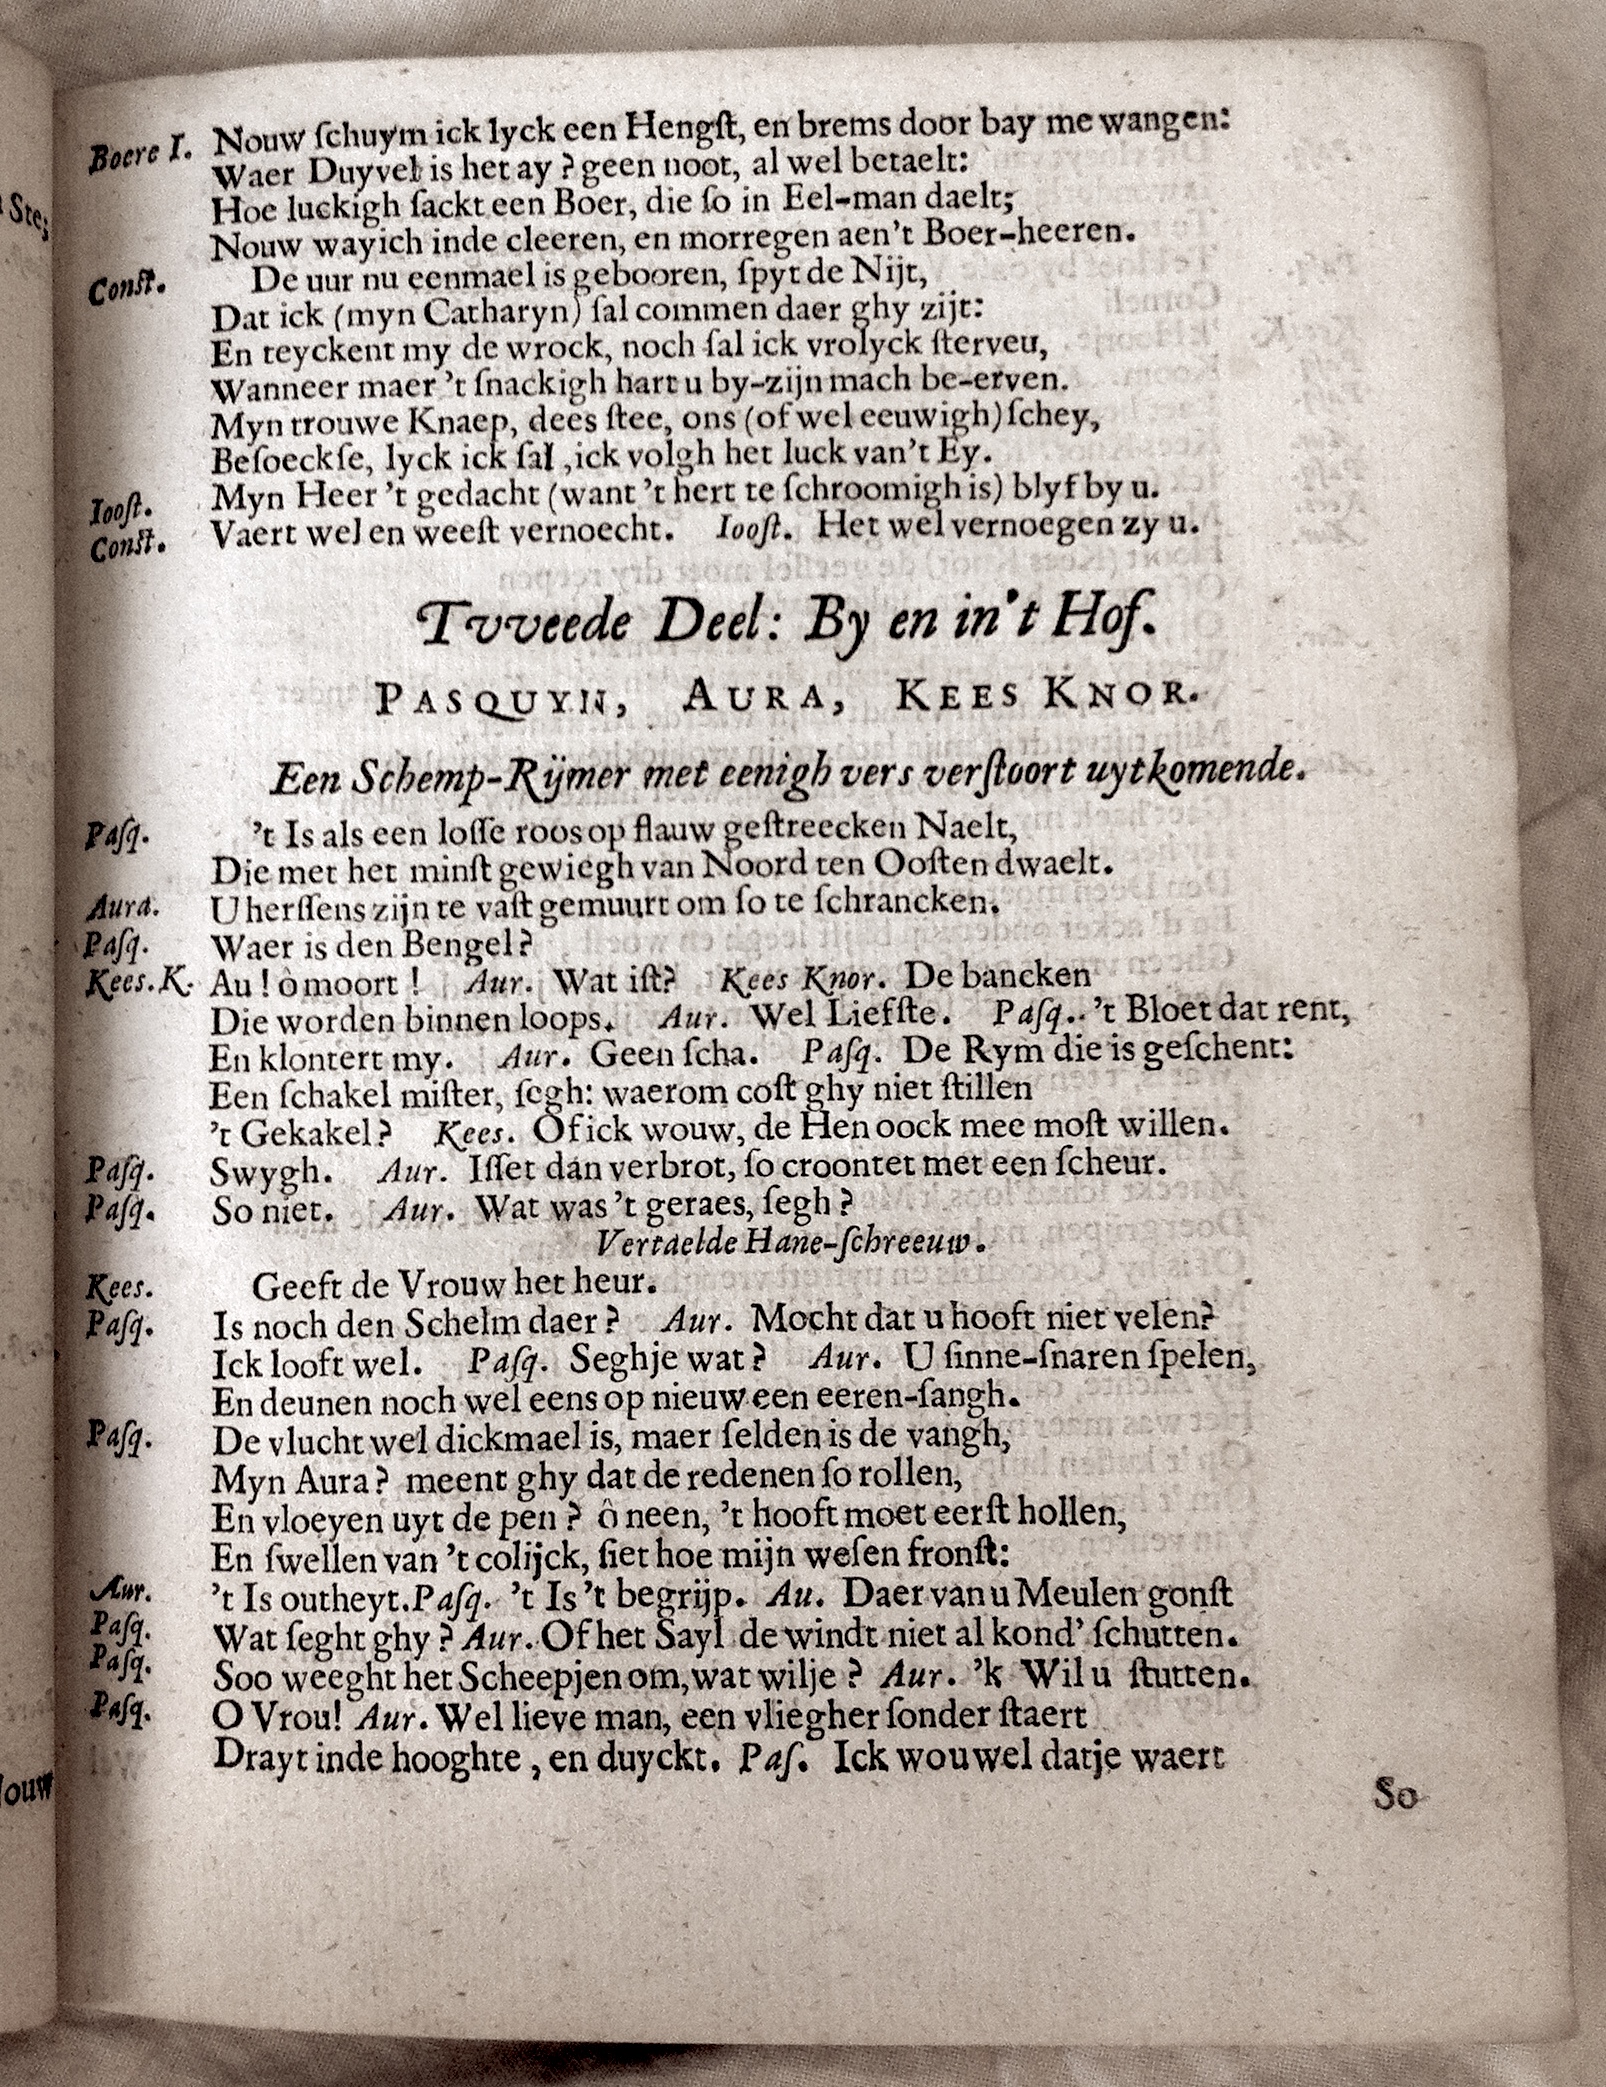 Boere I. Nouw ſchuym ick lyck een Hengſt, en brems door bay me wangen:
Waer Duyvel is het ay ? geen noot, al wel betaelt:
Hoe luckigh ſackt een Boer, die ſo in Eel-man daelt;
Nouw wayich inde cleeren, en morregen aen't Boer-heeren.
Conſt. De uur nu eenmael is gebooren, ſpyt de Nijt,
Dat ick (myn Catharyn) ſal commen daer ghy zijt:
En teyckent my de wrock, noch ſal ick vrolyck ſterveu,
Wanneer maer 't ſnackigh hart u by-zijn mach be-erven.
Myn trouwe Knaep, dees ſtee, ons (of wel eeuwigh) ſchey,
Beſoeckſe, lyck ick ſal ,ick volgh het luck van't Ey.
Iooſt. Myn Heer 't gedacht (want 't hert te ſchroomigh is) blyf by u.
Conſt. Vaert wel en weeſt vernoecht. Iooſt. Het wel vernoegen zy u.
Tvveede Deel: By en in't Hof.
PASQUYN, AURA, KEES KNOR.
Een Schemp-Rijmer met eenigh vers verſtoort uytkomende.
Paſq. 't Is als een loſſe roos op flauw geſtreecken Naelt,
Die met het minſt gewiegh van Noord ten Ooſten dwaelt.
Aura. U herſſens zijn te vaſt gemuurt om ſo te ſchrancken.
Paſq. Waer is den Bengel?
Kees.K. Au ! ô moort ! Aur. Wat iſt? Kees Knor. De bancken
Die worden binnen loops. Aur. Wel Liefſte. Paſq.. 't Bloet dat rent,
En klontert my. Aur. Geen ſcha. Paſq. De Rym die is geſchent:
Een ſchakel miſter, ſegh: waerom coſt ghy niet ſtillen
't Gekakel? Kees. Of ick wouw, de Hen oock mee moſt willen.
Paſq. Swygh. Aur. Iſſet dan verbrot, ſo croontet met een ſcheur.
Paſq. So niet. Aur. Wat was 't geraes, ſegh ?
Vertaelde Hane-ſchreeuw.
Kees. Geeft de Vrouw het heur.
Paſq. Is noch den Schelm daer ? Aur. Mocht dat u hooft niet velen?
Ick looft wel. Paſq. Seghje wat ? Aur. U ſinne-ſnaren ſpelen,
En deunen noch wel eens op nieuw een eeren-ſangh.
Paſq. De vlucht wel dickmael is, maer ſelden is de vangh,
Myn Aura? meent ghy dat de redenen ſo rollen,
En vloeyen uyt de pen ? ô neen, 't hooft moet eerſt hollen,
En ſwellen van 't colijck, ſiet hoe mijn weſen fronſt:
Aur. 't Is outheyt. Paſq. 't Is 't begrijp. Au. Daer van u Meulen gonſt
Paſq. Wat ſeght ghy ? Aur. Of het Sayl de windt niet al kond' ſchutten.
Paſq. Soo weeght het Scheepjen om, wat wilje ? Aur. 'k Wil u ſtutten.
Paſq. O Vrou! Aur. Wel lieve man, een vliegher ſonder ſtaert
Drayt inde hooghte , en duyckt. Paſ. Ick wou wel datje waert
So